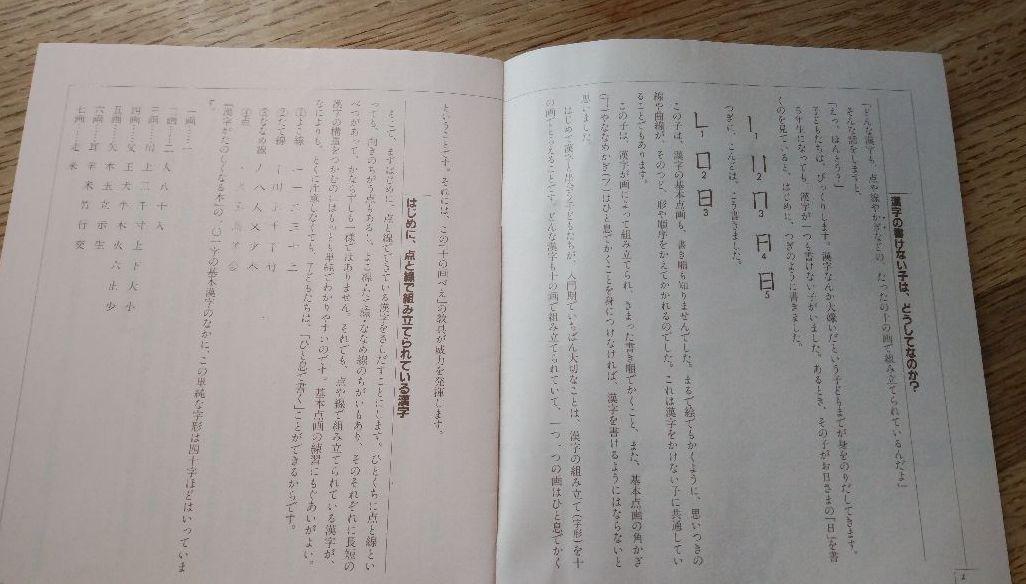 漢字の書けない子は、どうしてなのか？
「どんな漢字も、点や線やかぎなどの、たったの十の画で組み立てられているんだよ」
そんな話をしますと、
「えっ、ほんとう？」
子どもたちは、びっくりします。漢字なんか大嫌いだという子どもまでが身をのりだしてきます。
5年生になっても、漢字が一つも書けない子がいました。あるとき、その子がお日さまの「日」を書
くのを見ていると、はじめに、つぎのように書きました。
1 2 3 4 5
つぎに、こんどは、こう書きました。
1 2 3
この子は、漢字の基本点画も、書き順も知りませんでした。まるで絵でもかくように、思いつきの
線や曲線が、そのつど、形や順序をかえてかかれるのでした。これは漢字をかけない子に共通してい
ることでもあります。
この子は、漢字が画によって組み立てられ、きまった書き順でかくこと、また、基本点画の角かぎ
はひと息でかくことを身につけなければ、漢字を書けるようにはならないと
思いました。
はじめて漢字と出会う子どもたちが、入門期でいちばん大切なことは、漢字の組み立て(字形)を十
の画でとらえることです。どんな漢字も十の画で組み立てられていて、一つ一つの画はひと息でかく
ということです。それには、この「十の画べえ」の教具が威力を発揮します。
はじめに、点と線で組み立てられている漢字
そこで、まずはじめに、点と線でできている漢字をさがしだすことにします。ひとくちに点と線とい
っても、向きのちがう点があるし、よこ線・たて線・ななめ線のちがいもあり、そのそれぞれに長短の
べつがあって、かならずしも一様ではありません。それでも、点や線で組み立てられている漢字が、
漢字の構造をつかむのにはもっとも単純でわかりやすいのです。基本点画の練習にもぐあいがよい。
なによりも、とくに注意しなくても、子どもたちは、「ひと息で書く」ことができるからです。
①よこ線 一 二 三 十 土
②たて線
③ななめ線 ノ 八 人 又 少 木
④点
『漢字がたのしくなる本』の一〇一字の基本漢字のなかに、この単純な字形は四十字ほどはいっていま
す。
一画……一
二画……二 人 八 十 入
三画……三 川 土 三 千 寸 上 下 大 小
四画……父 王 犬 牛 木 火 六 止 少
五画……矢 本 五 立 示 生
六画……耳 羊 米 竹 行 交
七画……走 来